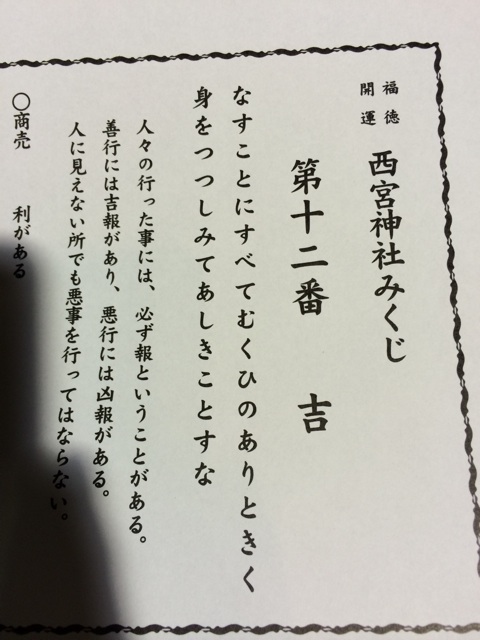 福徳
開運
西宮神社みくじ
第十二番 吉
なすことにすべてむくひのありときく
身をつつしみてあしきことすな
人々の行った事には、必ず報ということがある。
善行には吉報があり、悪行には凶報がある。
人に見えない所でも悪事を行ってはならない。
○商売 利がある